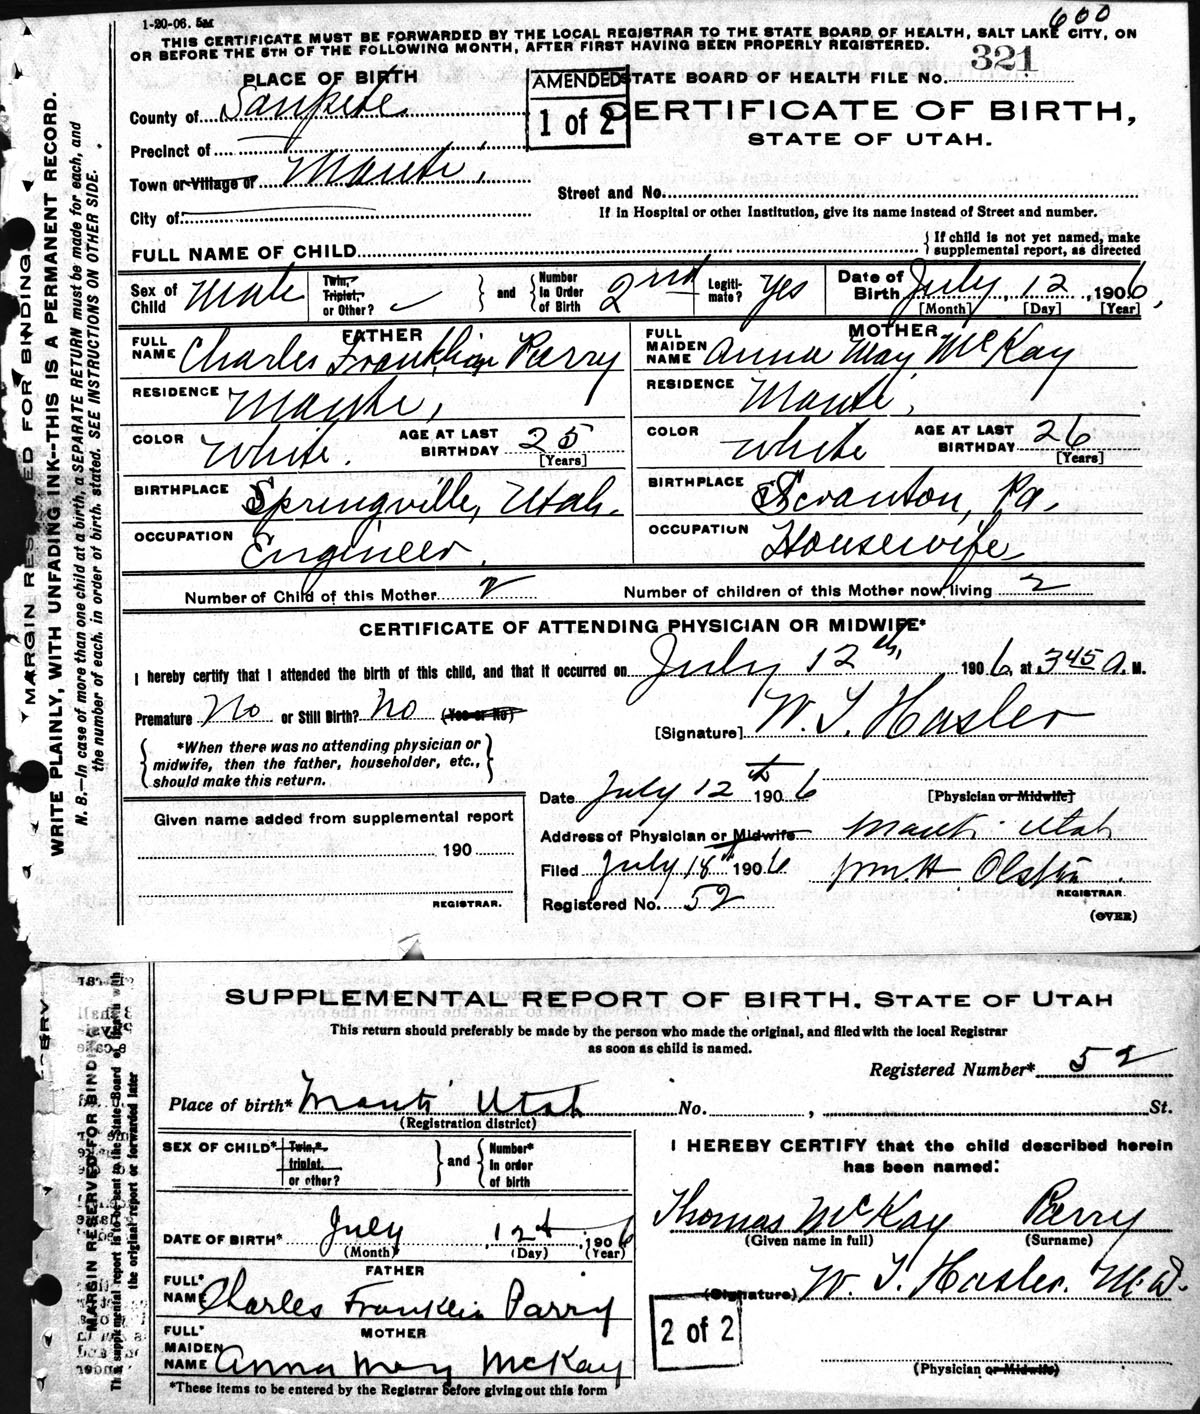 1-20-06. 5M
600
THIS CERTIFICATE MUST BE FORWARDED BY THE LOCAL REGISTRAR TO THE STATE BOARD OF HEALTH, SALT LAKE CITY, ON
OR BEFORE THE 5TH OF THE FOLLOWING MONTH, AFTER FIRST HAVING BEEN PROPERLY REGISTERED.
PLACE OF BIRTH
AMENDED
1 of 2
STATE BOARD OF HEALTH FILE No. 321
County of Sanpete
CERTIFICATE OF BIRTH,
STATE OF UTAH.
Precinct of
Town or Village of Manti,
Street and No.
City of:
If in Hospital or other Institution, give its name instead of Street and number.
FULL NAME OF CHILD
If child is not yet named, make
supplemental report, as directed
Sex of Child Male
Twin, Triplet, or Other? and Number In Order of Birth 2nd
Legitimate? Yes
Date of Birth July, 12, 1906,
[Month] [Day] [Year]
FATHER
FULL NAME Charles Franklin Parry
MOTHER
FULL MAIDEN NAME Anna May McKay
RESIDENCE Manti,
RESIDENCE Manti,
COLOR White. AGE AT LAST BIRTHDAY 25 [Years]
COLOR White AGE AT LAST BIRTHDAY 26 [Years]
BIRTHPLACE Springville, Utah.
BIRTHPLACE Scranton, Pa.
OCCUPATION Engineer.
OCCUPATION Housewife
Number of Child of this Mother 2
Number of children of this Mother now living 2
CERTIFICATE OF ATTENDING PHYSICIAN OR MIDWIFE*
I hereby certify that I attended the birth of this child, and that it occurred on July 12th, 1906, at 345 A. M.
Premature No or Still Birth? No (Yes or No)
[Signature] W. T. Hasler
*When there was no attending physician or
midwife, then the father, householder, etc.,
should make this return.
Date July 12th 1906
[Physician or Midwife]
Given name added from supplemental report
190
REGISTRAR.
Address of Physician or Midwife Manti Utah
Filed July 18th 1906 Wm H
REGISTRAR
Registered No. 52
(OVER)
MARGIN RESERVED FOR BINDING.
WRITE PLAINLY, WITH UNFADING INK--THIS IS A PERMANENT RECORD.
N. B.—In case of more than one child at a birth, a SEPARATE RETURN must be made for each, and
the number of each, in order of birth, stated. SEE INSTRUCTIONS ON OTHER SIDE.
SUPPLEMENTAL REPORT OF BIRTH, STATE OF UTAH
This return should preferably be made by the person who made the original, and filed with the local Registrar
as soon as child is named.
Registered Number* 52
Place of birth* Manti Utah No. , St.
(Registration district)
SEX OF CHILD* Twin,* triplet, or other? and Number* In order of birth
I HEREBY CERTIFY that the child described herein
has been named:
Thomas McKay Parry
(Given name in full) (Surname)
DATE OF BIRTH* July, 12th, 1906
(Month) (Day) (Year)
FATHER
FULL* NAME Charles Franklin Parry
(Signature) W. T. Hasler. M.D.
2 of 2
MOTHER
FULL* MAIDEN NAME Anna May McKay
(Physician or Midwife)
*These items to be entered by the Registrar before giving out this form
MARGIN RESERVED FOR BINDING
the original report or forwarded later